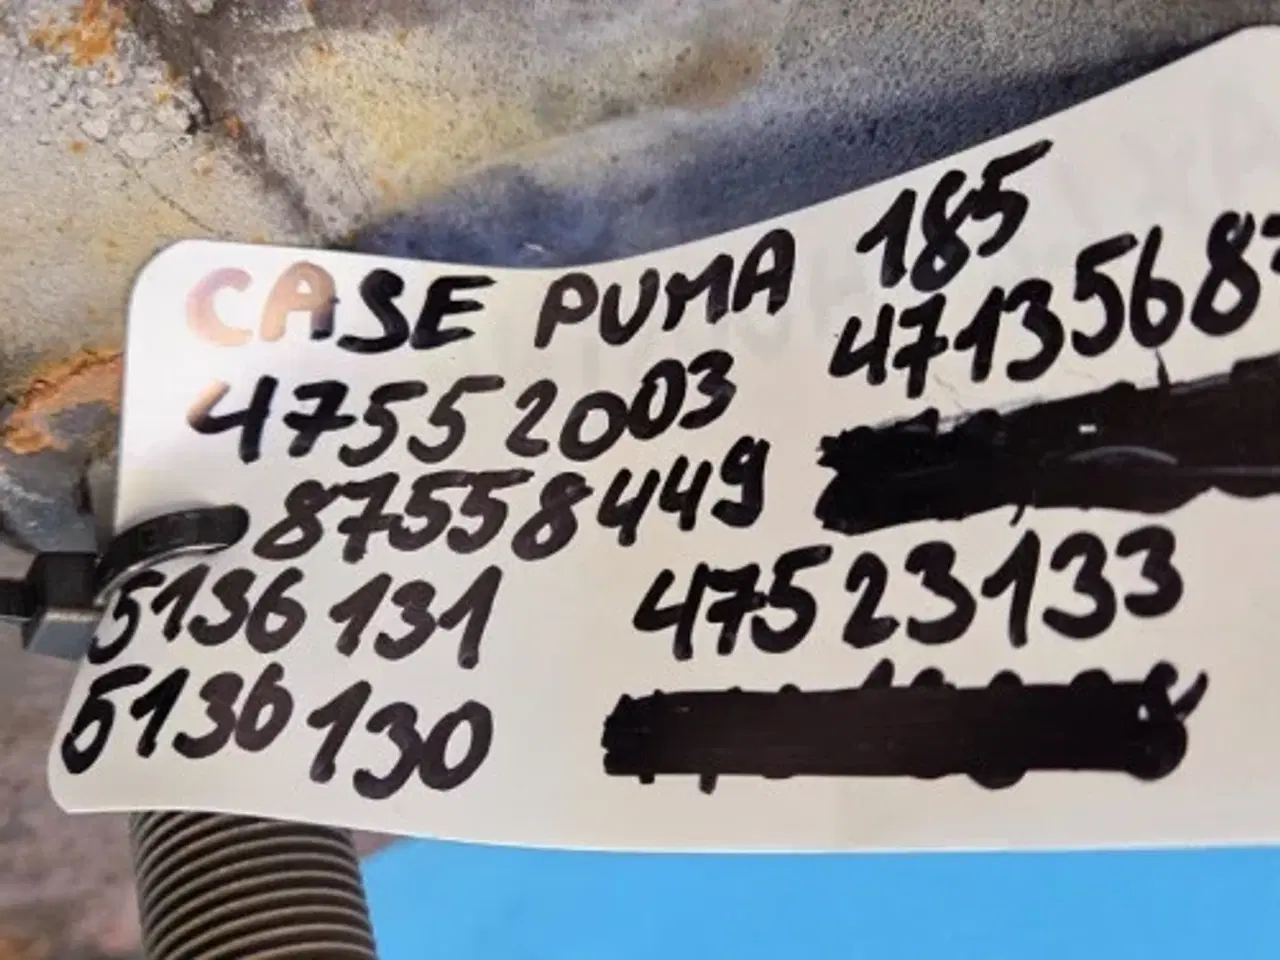 CASE PUMA 185
47552003
4713568
87558449
5136131
47523133
5136130